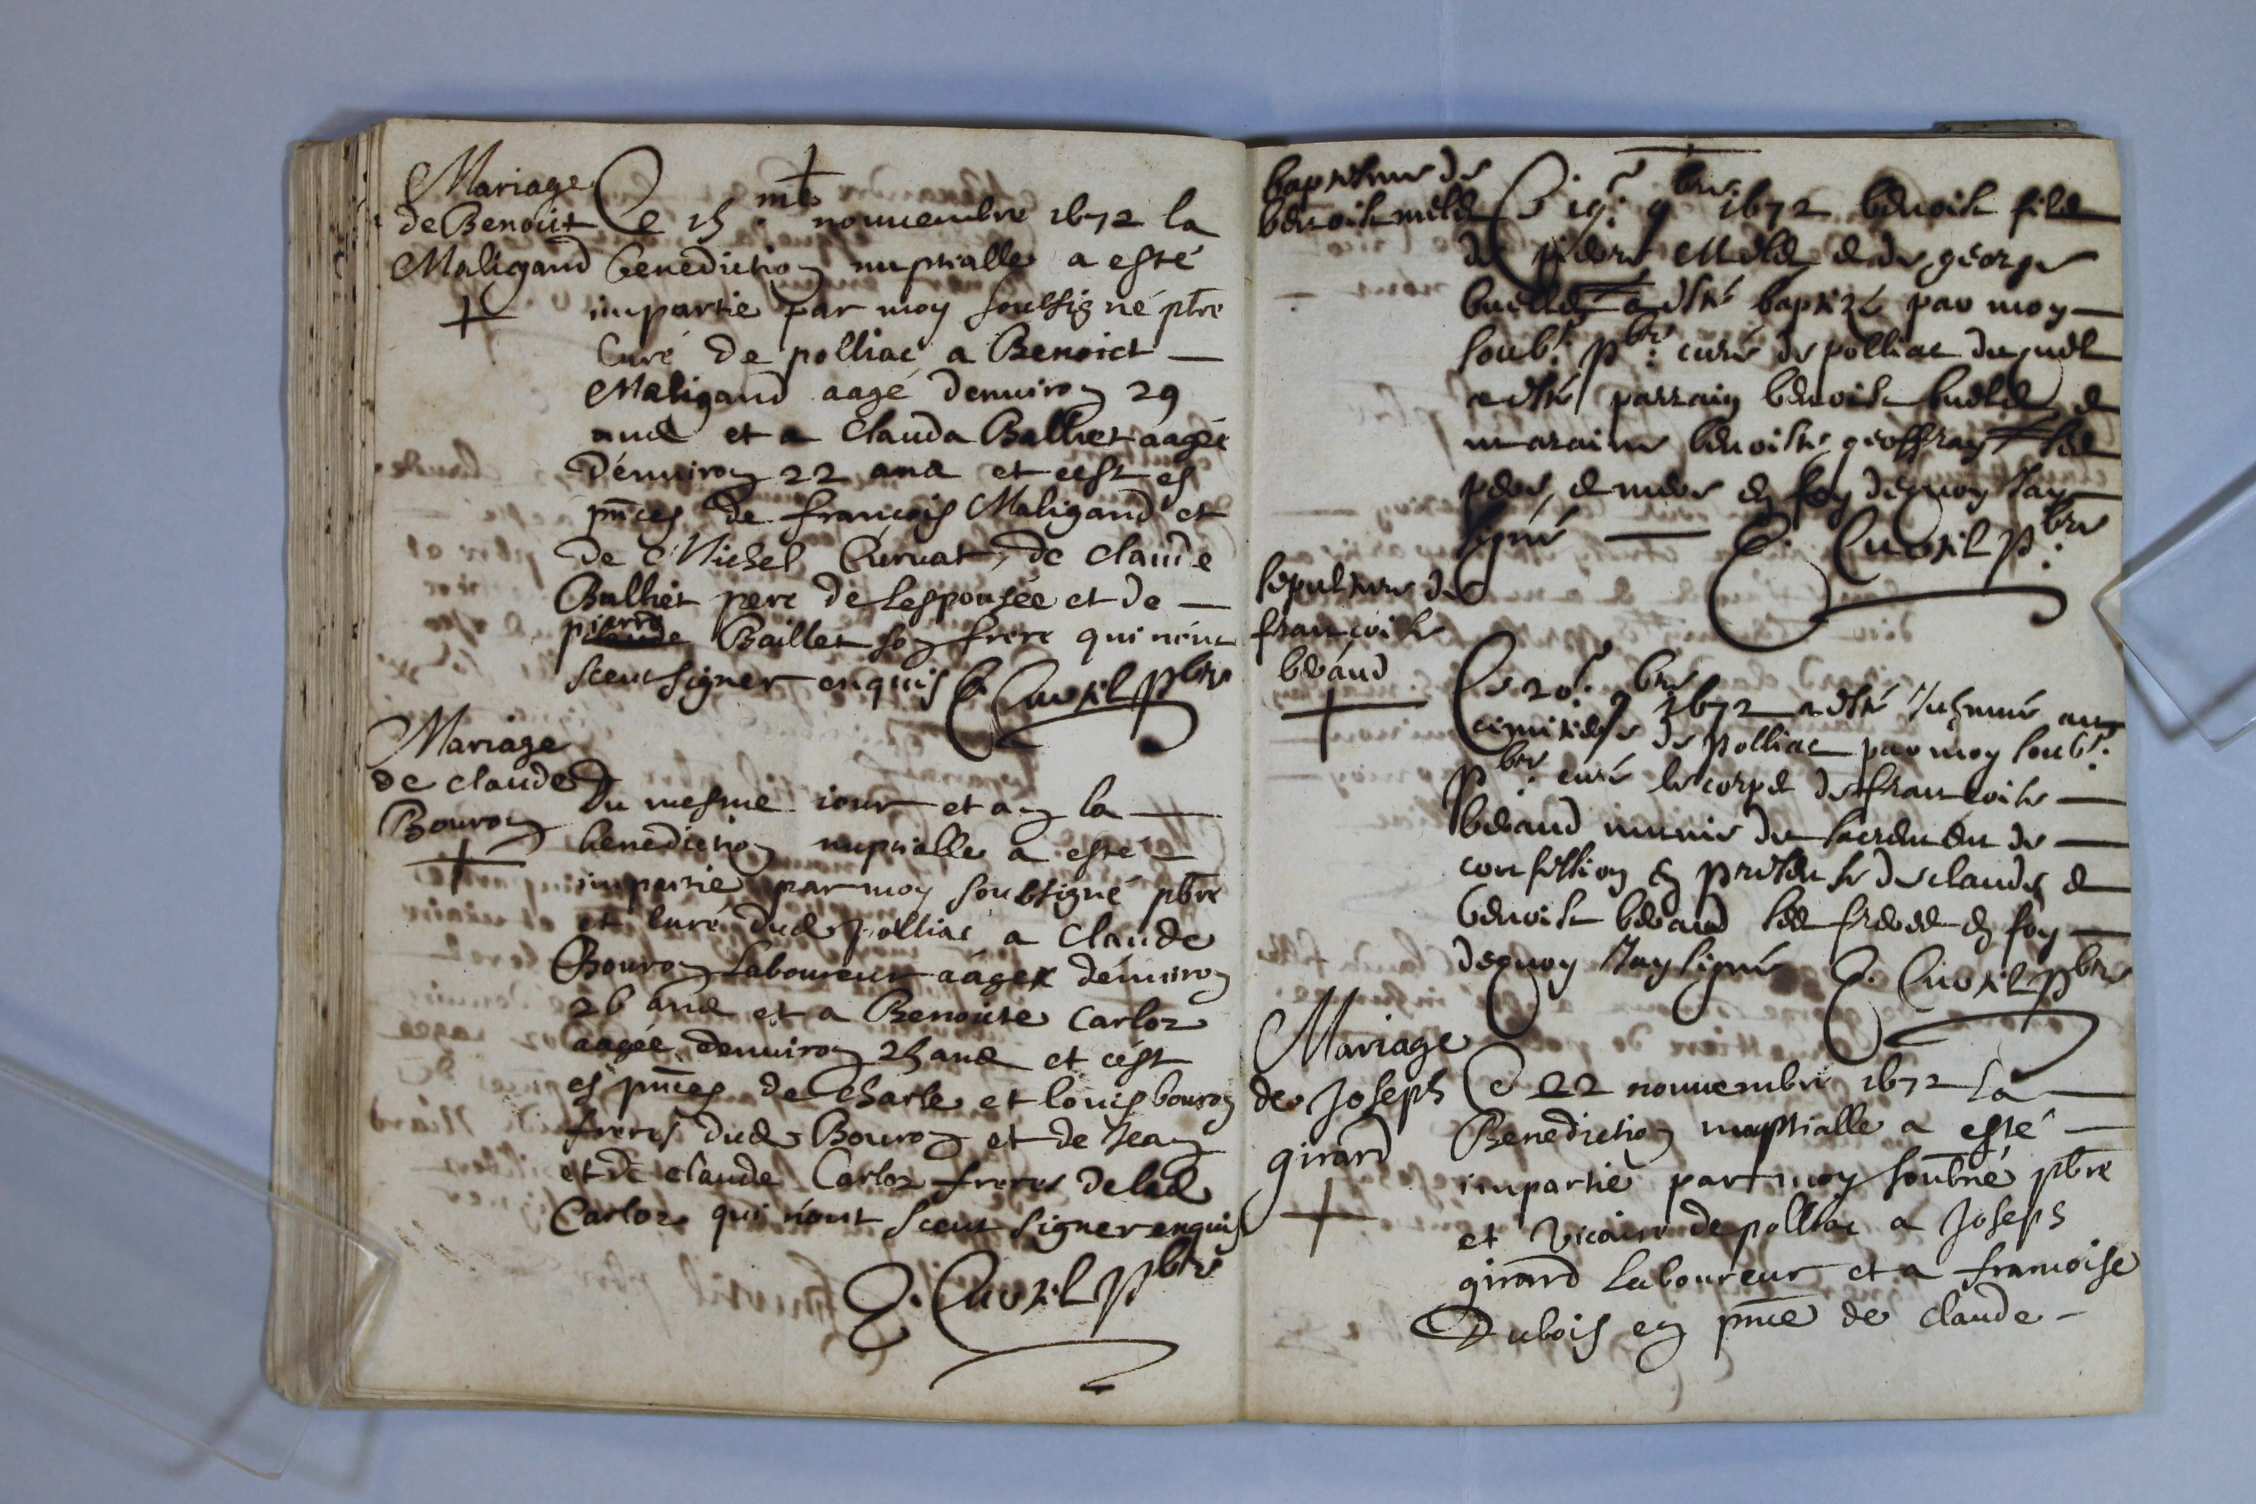 Mariage
de Benoit
Maligand
Ce 15 me nouuembre 1672 la
benediction nuptialle a esté
impartie par moy soubsigné pbre
Curé de polliac a Benoict
Maligand aagé denuiron 29
ans et a Clauda Balliet aagée
denuiron 22 ans et cest es
pnces de françois Maligand et
de Michel Curuat, de claude
Balliet pere de lespousée et de
pierre Baillet son frere qui nont
sceu signer enquis Cuoxil pbre
Mariage
de claude
Bouron
Du mesme iour et an la
benediction nuptialle a esté
impartie par moy soubsigné pbre
et curé dud polliac a claude
Bouron Laboureur aagé denuiron
26 ans et a Benoite Carloz
aagée denuiron 25 ans et cest
es pnces de charle et louis bouron
freres dud Bouron et de Jean
et de claude Carloz freres delad
Carloz qui nont sceu signer enquis
Cuoxil pbre
baptesme de
benoist
Ce 19e 9bre 1672 benoist fils
de pierre et de george
a esté baptizé par moy
soubs. pbre curé de polliac duquel
a esté parrain benoist et
maraine benoiste geoffray ses
pere et mere en foy dequoy Jay
signé Cuoxil pbre
sepulture de
francoise
beraud
Ce 20e 9bre 1672 a esté Inhumé au
cimitiere de polliac par moy soubs.
pbre curé le corps de francoise
beraud munie du sacrement de
confession en presence de claude et
benoist beraud ses freres en foy
dequoy Jay signé Cuoxil pbre
Mariage
de Joseph
girard
Ce 22 nouuembre 1672 la
Benediction nuptialle a esté
impartie par moy soubné pbre
et vicaire de polliac a Joseph
girard laboureur et a francoise
Dubois en pnce de claude